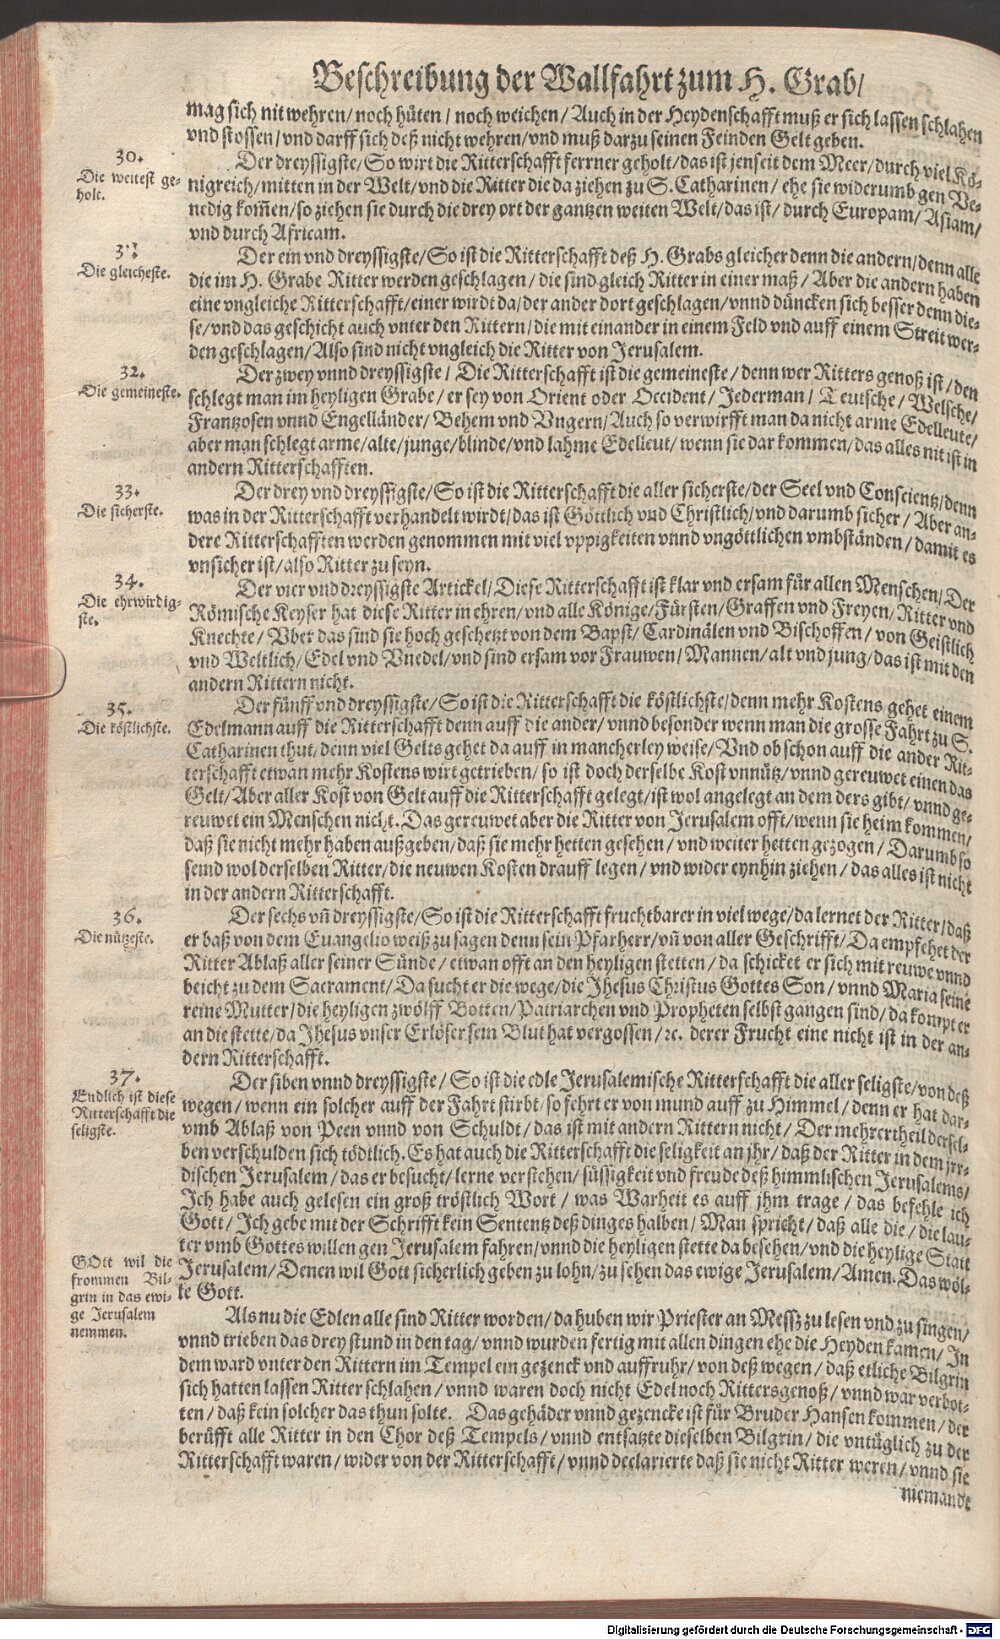 Beschreibung der Wallfahrt zum H. Grab/
mag sich nit wehren/ noch hüten/ noch weichen/ Auch in der Heydenschafft muß er sich lassen schlahen
vnd stossen/ vnd darff sich deß nicht wehren/ vnd muß darzu seinen Feinden Gelt geben.
30.
Die weitest ge-
holt.
Der dreyssigste/ So wirt die Ritterschafft ferrner geholt/ das ist jenseit dem Meer/ durch viel Kö-
nigreich/ mitten in der Welt/ vnd die Ritter die da ziehen zu S. Catharinen/ ehe sie widerumb gen Ve-
nedig kom̃en/ so ziehen sie durch die drey ort der gantzen weiten Welt/ das ist/ durch Europam/ Asiam/
vnd durch Africam.
31.
Die gleicheste.
Der ein vnd dreyssigste/ So ist die Ritterschafft deß H. Grabs gleicher denn die andern/ denn alle
die im H. Grabe Ritter werden geschlagen/ die sind gleich Ritter in einer maß/ Aber die andern haben
eine vngleiche Ritterschafft/ einer wirdt da/ der ander dort geschlagen/ vnnd düncken sich besser denn die-
se/ vnd das geschicht auch vnter den Rittern/ die mit einander in einem Feld vnd auff einem Streit wer-
den geschlagen/ Also sind nicht vngleich die Ritter von Jerusalem.
32.
Die gemeineste.
Der zwey vnnd dreyssigste/ Die Ritterschafft ist die gemeineste/ denn wer Ritters genoß ist/ den
schlegt man im heyligen Grabe/ er sey von Orient oder Occident/ Jederman/ Teutsche/ Welsche/
Frantzosen vnnd Engelländer/ Behem vnd Vngern/ Auch so verwirfft man da nicht arme Edelleute/
aber man schlegt arme/ alte/ junge/ blinde/ vnd lahme Edelleut/ wenn sie dar kommen/ das alles nit ist in
andern Ritterschafften.
33.
Die sicherste.
Der drey vnd dreyssigste/ So ist die Ritterschafft die aller sicherste/ der Seel vnd Conscientz/ denn
was in der Ritterschafft verhandelt wirdt/ das ist Göttlich vnd Christlich/ vnd darumb sicher/ Aber an-
dere Ritterschafften werden genommen mit viel vppigkeiten vnnd vngöttlichen vmbständen/ damit es
vnsicher ist/ also Ritter zu seyn.
34.
Die ehrwirdig-
ste.
Der vier vnd dreyssigste Artickel/ Diese Ritterschafft ist klar vnd ersam für allen Menschen/ Der
Römische Keyser hat diese Ritter in ehren/ vnd alle Könige/ Fürsten/ Graffen vnd Freyen/ Ritter vnd
Knechte/ Vber das sind sie hoch geschetzt von dem Bapst/ Cardinälen vnd Bischoffen/ von Geistlich
vnd Weltlich/ Edel vnd Vnedel/ vnd sind ersam vor Frauwen/ Mannen/ alt vnd jung/ das ist mit den
andern Rittern nicht.
35.
Die köstlichste.
Der fünff vnd dreyssigste/ So ist die Ritterschafft die köstlichste/ denn mehr Kostens gehet einem
Edelmann auff die Ritterschafft denn auff die ander/ vnnd besonder wenn man die grosse Fahrt zu S.
Catharinen thut/ denn viel Gelts gehet da auff in mancherley weise/ Vnd ob schon auff die ander Rit-
terschafft etwan mehr Kostens wirt getrieben/ so ist doch derselbe Kost vnnütz/ vnnd gereuwet einen das
Gelt/ Aber aller Kost von Gelt auff die Ritterschafft gelegt/ ist wol angelegt an dem ders gibt/ vnnd ge-
reuwet ein Menschen nicht. Das gereuwet aber die Ritter von Jerusalem offt/ wenn sie heim kommen/
daß sie nicht mehr haben außgeben/ daß sie mehr hetten gesehen/ vnd weiter hetten gezogen/ Darumb so
seind wol derselben Ritter/ die neuwen Kosten drauff legen/ vnd wider eynhin ziehen/ das alles ist nicht
in der andern Ritterschafft.
36.
Die nützeste.
Der sechs vñ dreyssigste/ So ist die Ritterschafft fruchtbarer in viel wege/ da lernet der Ritter/ daß
er baß von dem Euangelio weiß zu sagen denn sein Pfarherr/ vñ von aller Geschrifft/ Da empfehet der
Ritter Ablaß aller seiner Sünde/ etwan offt an den heyligen stetten/ da schicket er sich mit reuwe vnnd
beicht zu dem Sacrament/ Da sucht er die wege/ die Jhesus Christus Gottes Son/ vnnd Maria seine
reine Mutter/ die heyligen zwölff Botten/ Patriarchen vnd Propheten selbst gangen sind/ da kompt er
an die stette/ da Jhesus vnser Erlöser sein Blut hat vergossen/ ꝛc. derer Frucht eine nicht ist in der an-
dern Ritterschafft.
37.
Endlich ist diese
Ritterschafft die
seligste.
Der siben vnnd dreyssigste/ So ist die edle Jerusalemische Ritterschafft die aller seligste/ von deß
wegen/ wenn ein solcher auff der Fahrt stirbt/ so fehrt er von mund auff zu Himmel/ denn er hat dar-
vmb Ablaß von Peen vnnd von Schuldt/ das ist mit andern Rittern nicht/ Der mehrertheil dersel-
ben verschulden sich tödtlich. Es hat auch die Ritterschafft die seligkeit an jhr/ daß der Ritter in dem jrr-
dischen Jerusalem/ das er besucht/ lerne verstehen/ süssigkeit vnd freude deß himmlischen Jerusalems/
Ich habe auch gelesen ein groß tröstlich Wort/ was Warheit es auff jhm trage/ das befehle ich
Gott/ Ich gebe mit der Schrifft kein Sententz deß dinges halben/ Man spricht/ daß alle die/ die lau-
ter vmb Gottes willen gen Jerusalem fahren/ vnnd die heyligen stette da besehen/ vnd die heylige Statt
Jerusalem/ Denen wil Gott sicherlich geben zu lohn/ zu sehen das ewige Jerusalem/ Amen. Das wöl-
le Gott.
GOtt wil die
frommen Bil-
grin in das ewi-
ge Jerusalem
nemmen.
Als nu die Edlen alle sind Ritter worden/ da huben wir Priester an Messz zu lesen vnd zu singen/
vnnd trieben das drey stund in den tag/ vnnd wurden fertig mit allen dingen ehe die Heyden kamen/ In
dem ward vnter den Rittern im Tempel ein gezenck vnd auffruhr/ von deß wegen/ daß etliche Bilgrin
sich hatten lassen Ritter schlahen/ vnnd waren doch nicht Edel noch Rittersgenoß/ vnnd war verbot-
ten/ daß kein solcher das thun solte. Das gehäder vnnd gezencke ist für Bruder Hansen kommen/ der
berüfft alle Ritter in den Chor deß Tempels/ vnnd entsatzte dieselben Bilgrin/ die vntüglich zu der
Ritterschafft waren/ wider von der Ritterschafft/ vnnd declarierte daß sie nicht Ritter weren/ vnnd sie
niemandt
Digitalisierung gefördert durch die Deutsche Forschungsgemeinschaft - DFG